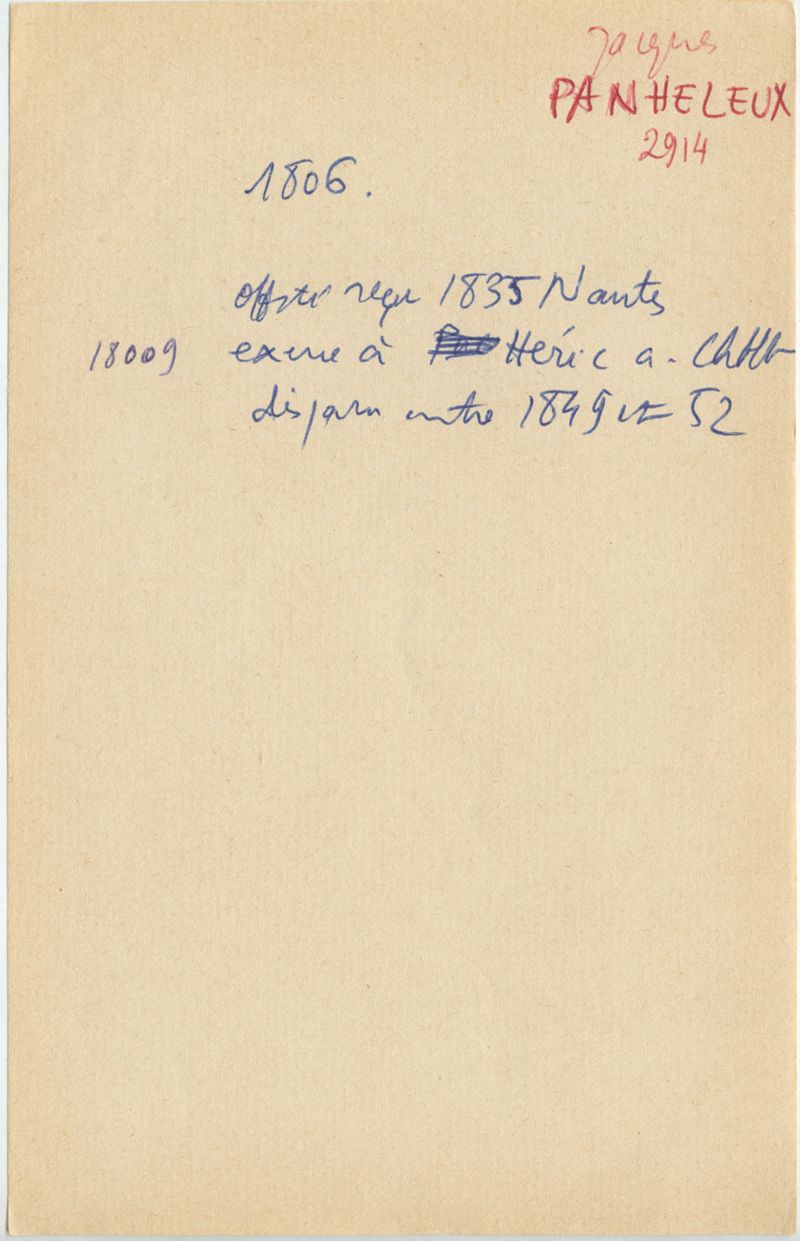 Jacques
PANHELEUX
2914
1806.
reçu 1835 Nantes
18009 exerce à Héric a.
disparu entre 1849 et 52